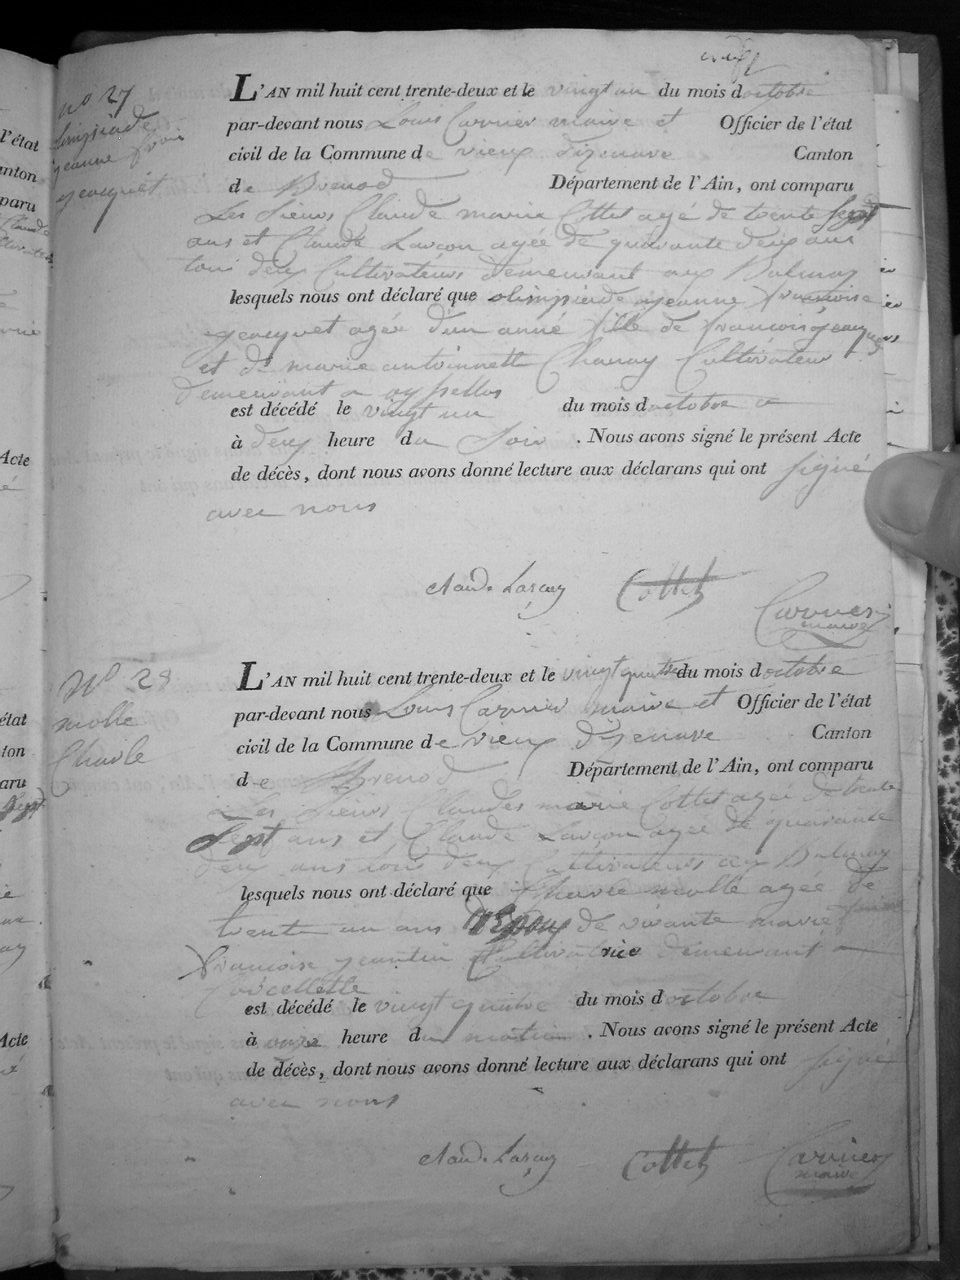 no 27
olimpiade
jeanne frois
jeacquet
L'AN mil huit cent trente-deux et le vingt un du mois doctobre
par-devant nous Louis Carrier maire et Officier de l'état
civil de la Commune de vieux dizenave Canton
de Brenod Département de l'Ain, ont comparu
Les sieurs Claude marie Cottet agé de trente sept
ans et Claude Larçon agée de quarante deux ans
tous deux Cultivateurs demeurant aux Balmay
lesquels nous ont déclaré que olimpiade jeanne françoise
jeacquet agée d'un anné fille de françois jeacquet
et de marie antoinnette Chanay Cultivateur
demeurant a
est décédé le vingt un du mois doctobre a
à deux heure du Soir . Nous avons signé le présent Acte
de décès, dont nous avons donné lecture aux déclarans qui ont signé
avec nous
Claude Larçon Cottet Carrier
maire
No 28
molle
Charle
L'AN mil huit cent trente-deux et le vingt quatre du mois doctobre
par-devant nous Louis Carrier maire et Officier de l'état
civil de la Commune de vieux dizenave Canton
de Brenod Département de l'Ain, ont comparu
Les sieurs Claudes marie Cottet agée de trente
Sept ans et Claude Larçon agée de quarante
deux ans tous deux Cultivateurs aux Balmay
lesquels nous ont déclaré que Charle molle agée de
trente un ans Epoux de vivante marie
françoise jeantin Cultivatrice demeurant a
Corcellette
est décédé le vingt quatre du mois doctobre
à onze heure du matin . Nous avons signé le présent Acte
de décès, dont nous avons donné lecture aux déclarans qui ont signé
avec nous
Claude Larçon Cottet Carrier
maire